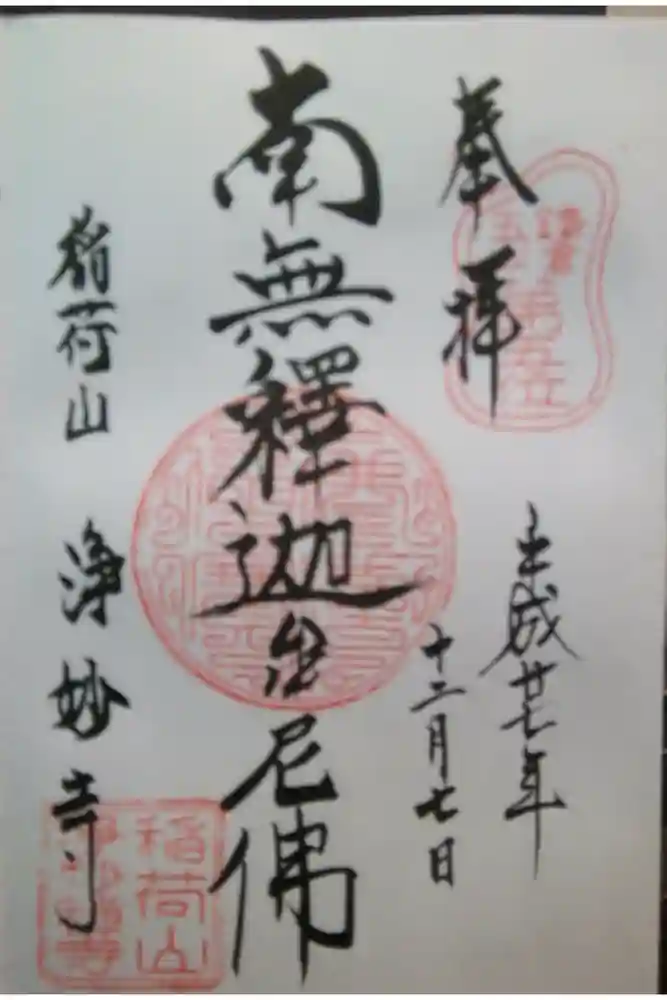 奉拝
平成廿七年
十二月七日
南無釋迦牟尼佛
稲荷山 浄妙寺
稲荷山
浄妙寺